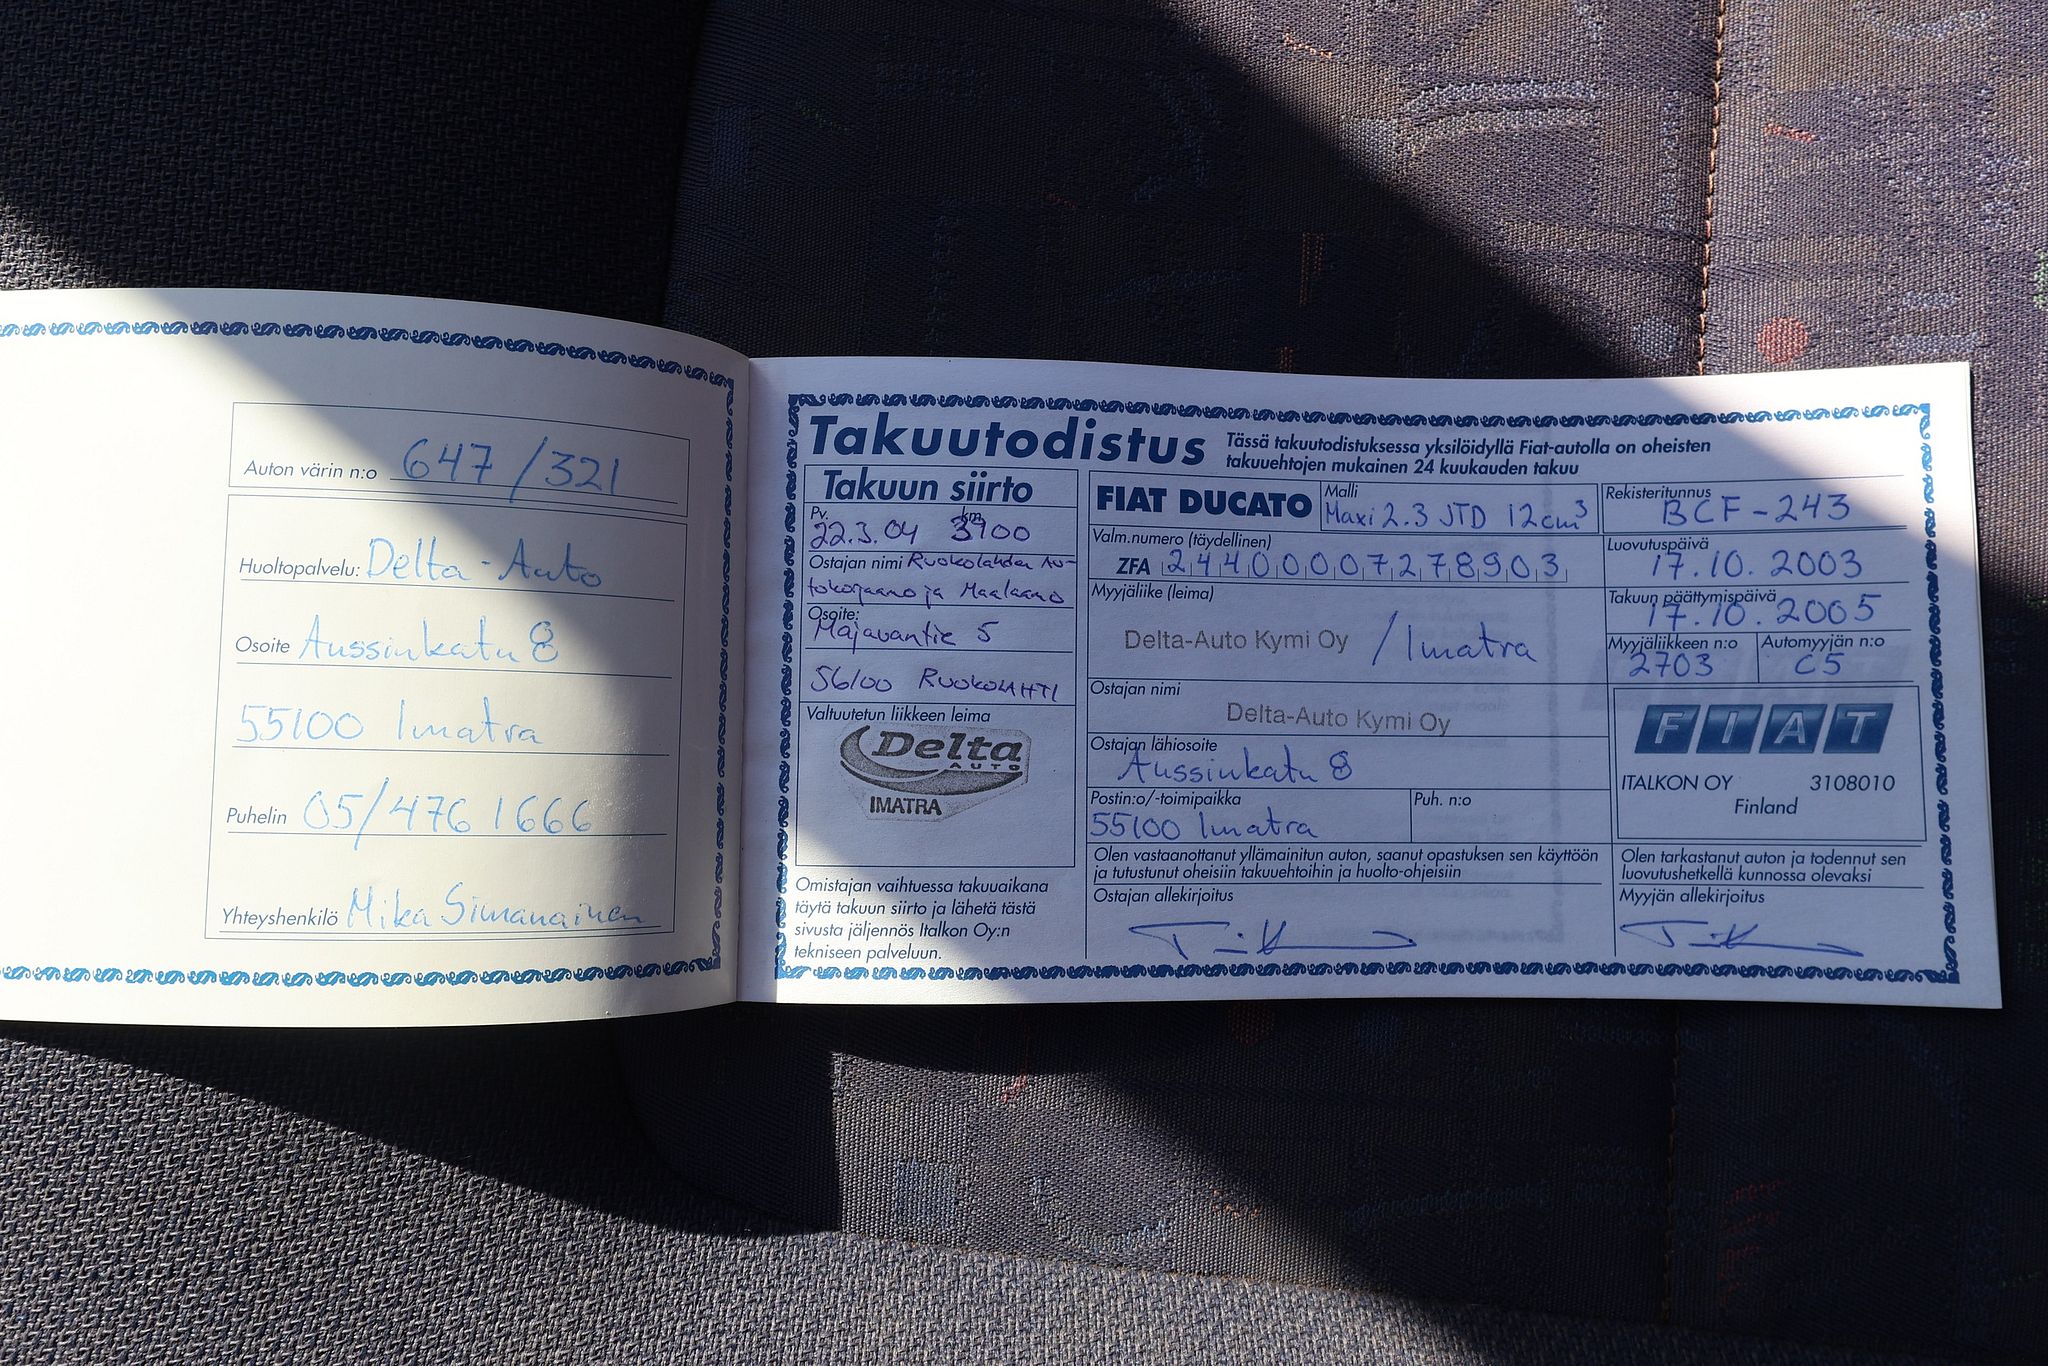 Auton värin n:o 647/321
Huoltopalvelu: Delta-Auto
Osoite Aussinkatu 8
55100 Imatra
Puhelin 05/476 1666
Yhteyshenkilö Mika Simanainen
Takuutodistus
Tässä takuutodistuksessa yksilöidyllä Fiat-autolla on oheisten
takuuehtojen mukainen 24 kuukauden takuu
Takuun siirto
Pv. km
22.3.04 3900
Ostajan nimi Ruokolahden Au-
tokorjaamo ja Maalaamo
Osoite:
Majavantie 5
56100 RUOKOLAHTI
Valtuutetun liikkeen leima
Delta
AUTO
IMATRA
Omistajan vaihtuessa takuuaikana
täytä takuun siirto ja lähetä tästä
sivusta jäljennös Italkon Oy:n
tekniseen palveluun.
FIAT DUCATO
Malli
Maxi 2.3 JTD 12cm³
Rekisteritunnus
BCF-243
Valm.numero (täydellinen)
ZFA 24400007278903
Luovutuspäivä
17.10.2003
Myyjäliike (leima)
Delta-Auto Kymi Oy / Imatra
Takuun päättymispäivä
17.10.2005
Myyjäliikkeen n:o
2703
Automyyjän n:o
C5
Ostajan nimi
Delta-Auto Kymi Oy
Ostajan lähiosoite
Aussinkatu 8
Postin:o/-toimipaikka
55100 Imatra
Puh. n:o
FIAT
ITALKON OY 3108010
Finland
Olen vastaanottanut yllämainitun auton, saanut opastuksen sen käyttöön
ja tutustunut oheisiin takuuehtoihin ja huolto-ohjeisiin
Ostajan allekirjoitus
Olen tarkastanut auton ja todennut sen
luovutushetkellä kunnossa olevaksi
Myyjän allekirjoitus